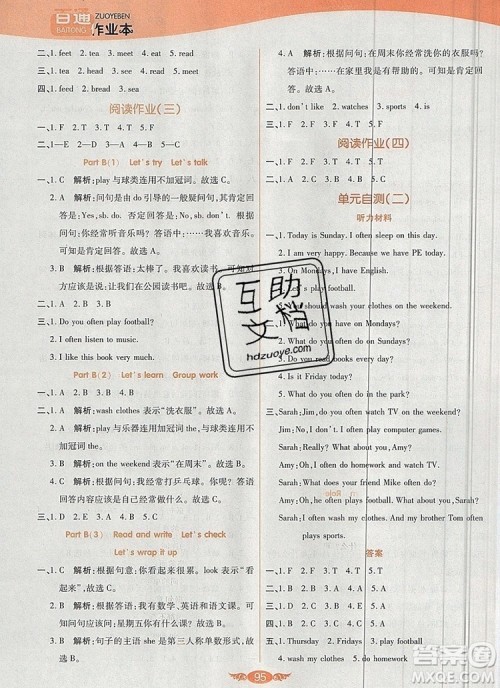 百通
BAITONG
ZUOYEBEN
作业本
二、1. feet 2. tea 3. meat 4. see
三、1. tea 2. meat 3. see 4. feet
四、1. feed 2. bread 3. read
阅读作业(三)
一、1. F 2. T 3. T 4. T 5. F
二、1—E 2—C 3—D 4—B 5—A
Part B(1) Let's try Let's talk
一、1. C 解析:play与球类连用不加冠词。故选C。
2. A 解析:问句是由do引导的一般疑问句,其肯定回
答为Yes, sb. do. 否定回答为No, sb. don't. 问句:
你经常听音乐吗? 答语中……我喜欢音乐。
可知为肯定回答。故选A。
3. B 解析:根据答语:太棒了。我喜欢足球。可知对
方应该是说:让我们在公园读书吧。故选B。
二、1. A 2. B 3. B
三、1. Do you often play football?
2. I often listen to music.
3. I like this book very much.
Part B(2) Let's learn Group work
一、1. B 解析:wash clothes表示“洗衣服”。故选B。
2. A 解析:play与乐器连用加冠词the。故选A。
3. B 解析:on the weekend表示“在周末”。故选B。
4. B 解析:根据答语:我经常打乒乓球。可知问句应
是询问自己经常做什么。故选B。
二、1. C 2. D 3. A 4. B
Part B(3) Read and write Let's check
Let's wrap it up
一、1. C 解析:根据句意:你看起来很累。look表示“看
起来”。故选C。
2. B 解析:根据答语:我有数学、英语和语文课。可
知问句应问:星期五你有什么课? 故选B。
3. B 解析:句子的主语she是第三人称单数形式。故
选B。
4. A 解析:根据问句:在周末你经常洗你的衣服吗?
答语中……在家里我是有帮助的。可知是肯定回
答。故选A。
二、1. don't like 2. watch 3. sports 4. is
三、1. F 2. F 3. T 4. F
阅读作业(四)
一、1. B 2. A 3. B 4. A
二、1. T 2. T 3. F 4. F
单元自测(二)
听力材料
一、1. Today is Sunday. I often sleep on this day.
2. I am very happy. Because we have PE today.
3. On Mondays, I have English.
4. Let's play football.
5. You should wash your clothes on the weekend.
二、1. What do you have on Mondays?
2. Do you often play football?
3. Do you read books every day?
4. Is it Friday today?
5. What do you often do on Sundays?
三、Sarah:Jim, do you often watch TV on the weekend?
Jim:No, I don't. I often play computer games.
Sarah:Really? I often play football.
Amy:Oh, I often watch TV.
Sarah:Amy, do you often wash clothes at home?
Amy:Yes, I do.
Sarah:What does your friend Mike often do?
Amy:Oh, he often plays football.
Sarah:I often wash my clothes. And my brother Tom
often cooks at home.
答案
一、1. B 2. A 3. B 4. B 5. A
二、1. B 2. B 3. A 4. B 5. A
三、1. C 2. E 3. A 4. D 5. B
四、1. F 2. F 3. T 4. T 5. F
五、1. Thursday 2. Fridays 3. play football
4. wash clothes 5. do homework
互助
文档
hdzuoye.com
95
答案圈
MXQE.COM